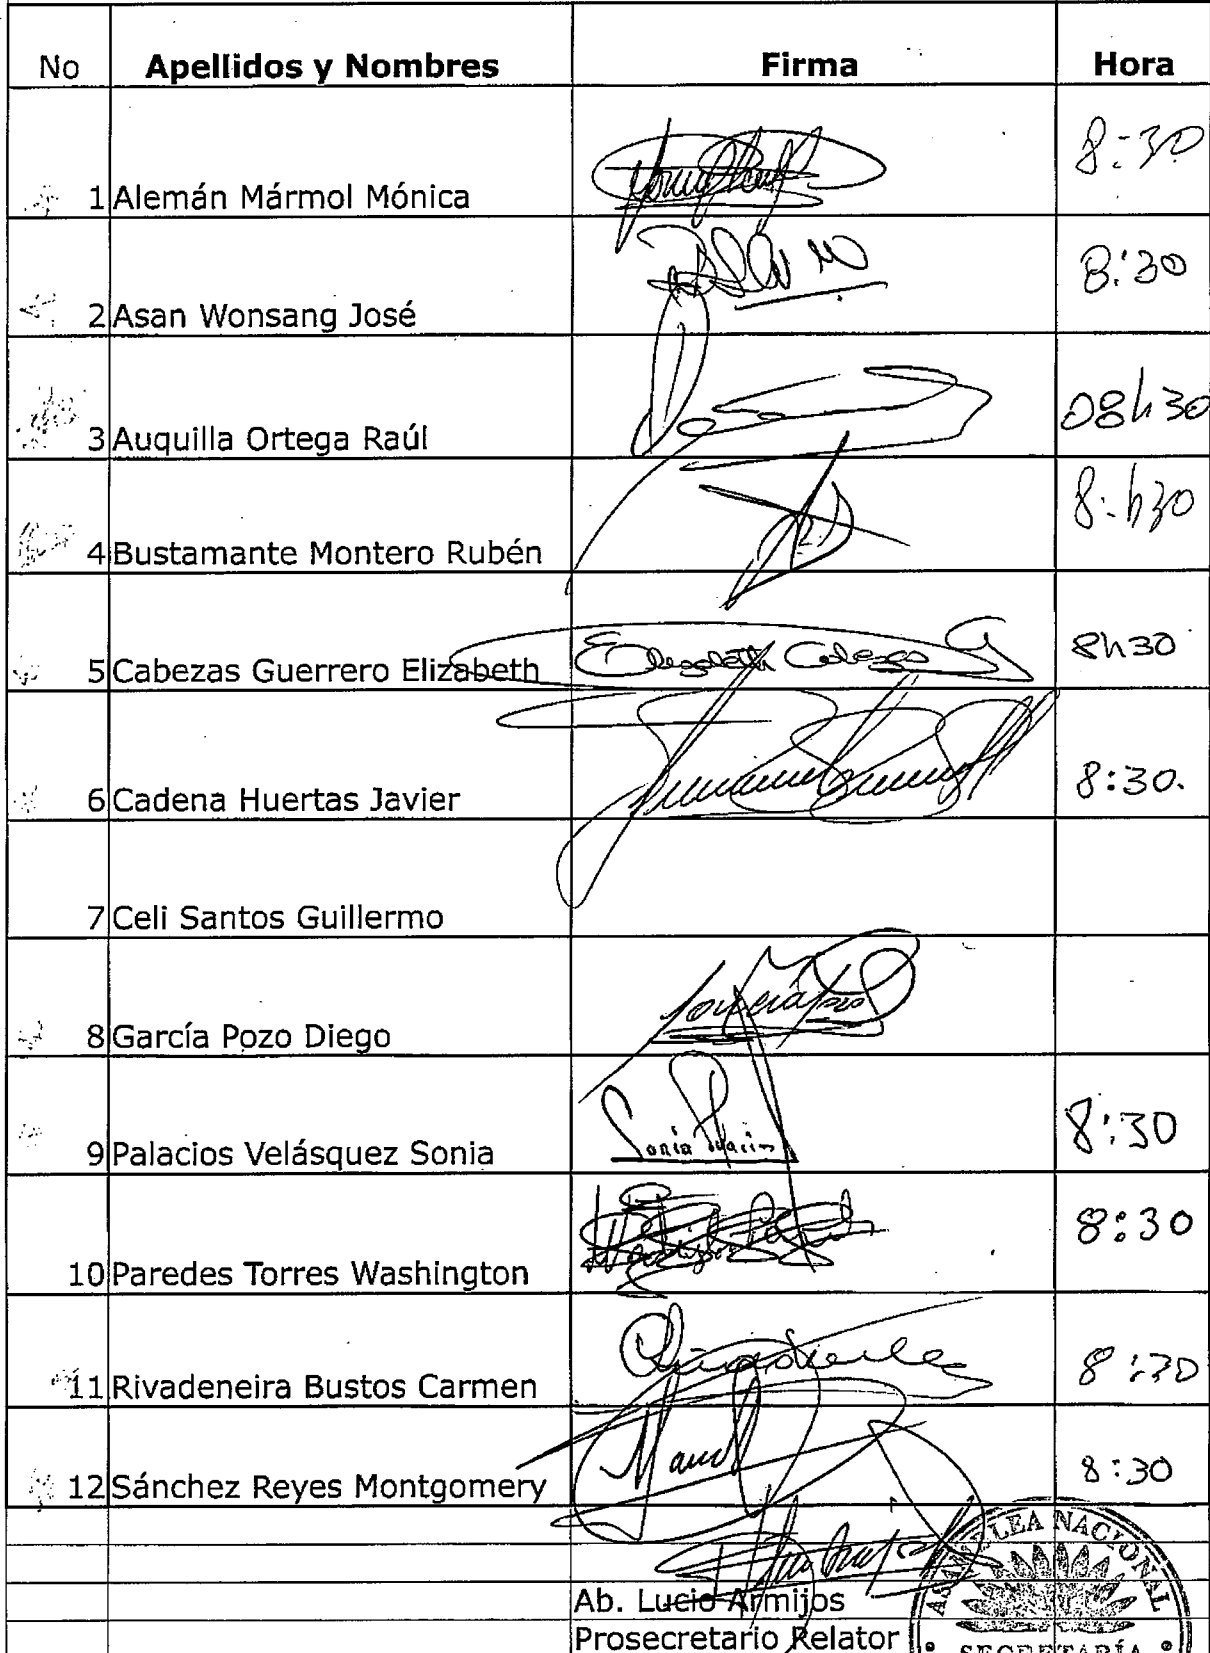 No Apellidos y Nombres Firma Hora
1 Alemán Mármol Mónica 8:30
2 Asan Wonsang José 8:30
3 Auquilla Ortega Raúl 08h30
4 Bustamante Montero Rubén 8:h30
5 Cabezas Guerrero Elizabeth Elizabeth Cabezas G 8h30
6 Cadena Huertas Javier 8:30.
7 Celi Santos Guillermo
8 García Pozo Diego
9 Palacios Velásquez Sonia Sonia Palacios 8:30
10 Paredes Torres Washington 8:30
11 Rivadeneira Bustos Carmen 8:30
12 Sánchez Reyes Montgomery 8:30
Ab. Lucio Armijos
Prosecretario Relator
ASAMBLEA NACIONAL
SECRETARÍA